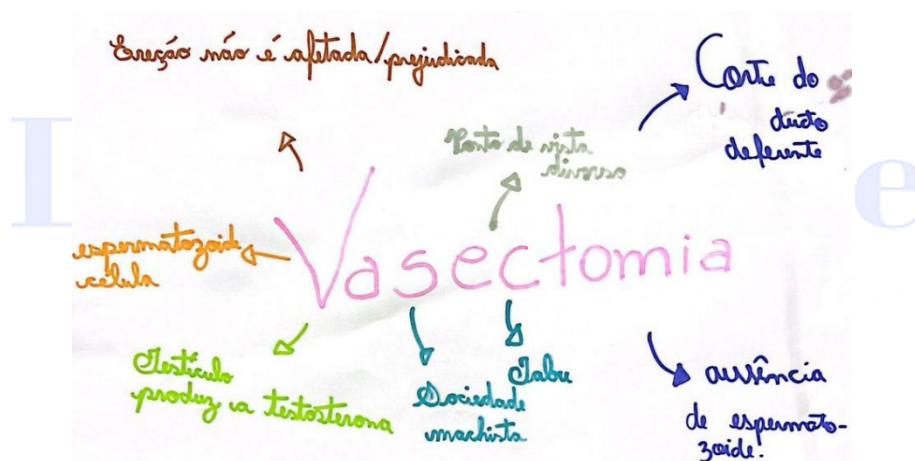 Ereção não é afetada/prejudicada
Corte do
ducto
deferente
Ponto de vista
diverso
espermatozoide
célula
Vasectomia
Testículo
produz a testosterona
Sociedade
machista
Tabu
ausência
de espermato-
zoide.